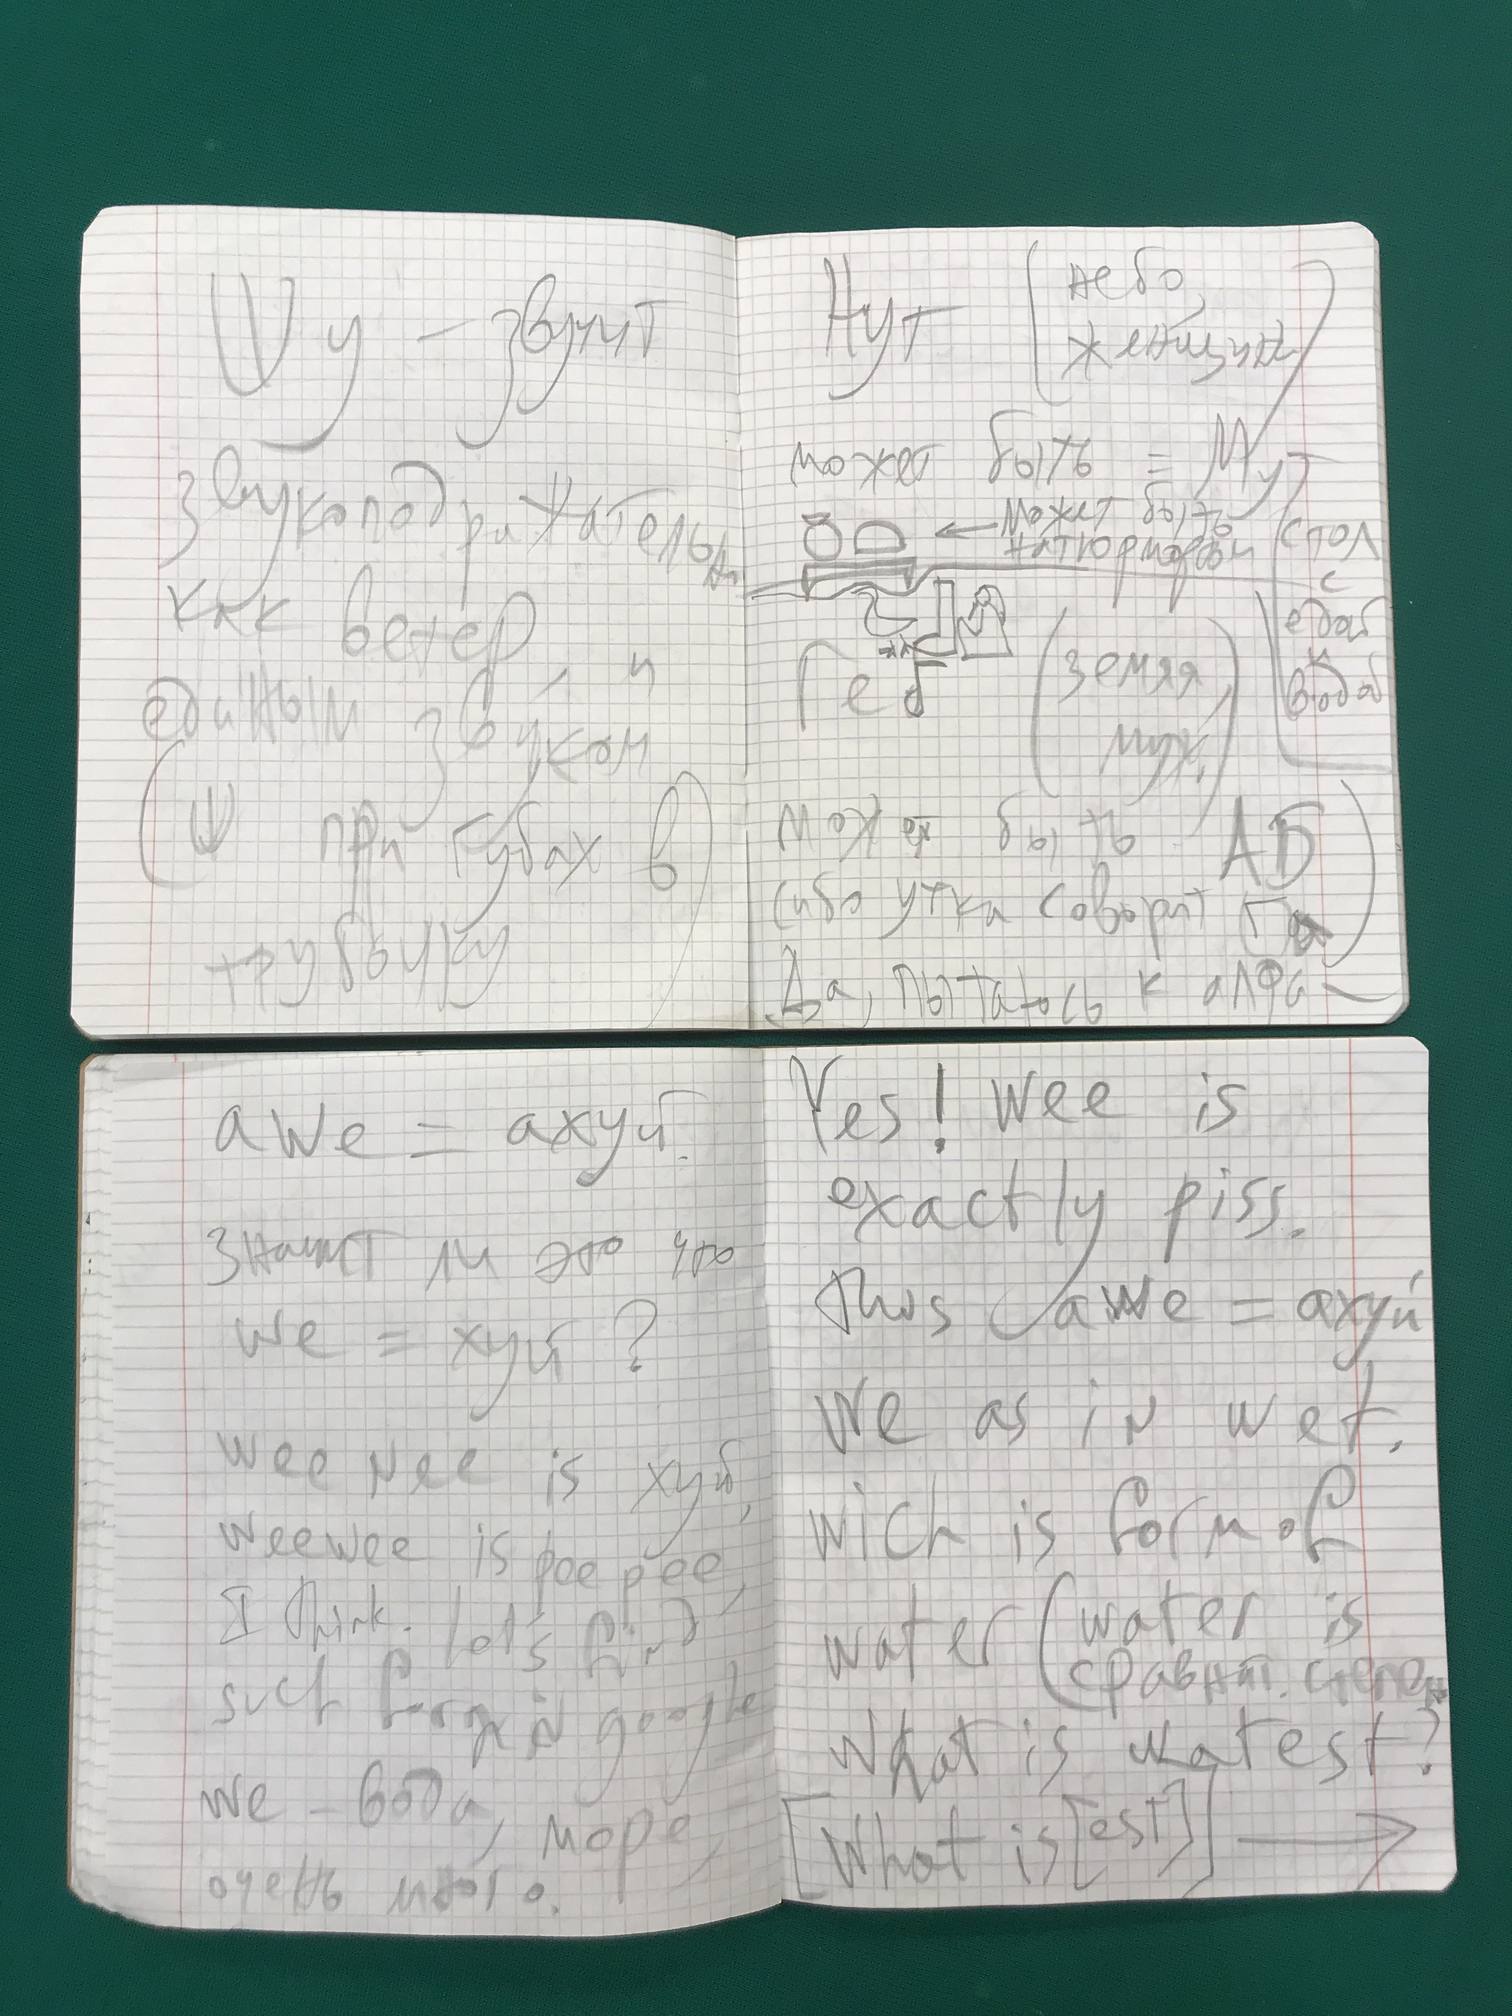 Шу - звучит
звукоподражательна
как ветер, и
единым звуком
(Ш при губах в
трубочку)
Нут (небо,
женщина)
может быть = Мут
← может быть
стол
с
едой
и
водой
Геб (земля
муж.)
может быть АБ
(ибо утка говорит Га
Да, пыталась к алфа-
awe = ахуй.
Значит ли это что
we = хуй?
wee nee is хуй,
weewee is peepee,
I think. let's find
such form in google
we - вода, море,
очень много.
Yes! wee is
exactly piss.
this awe = ахуй
we as in wet.
wich is form of
water (water is
сравнит. степень
What is watest?
[What is [est]] →